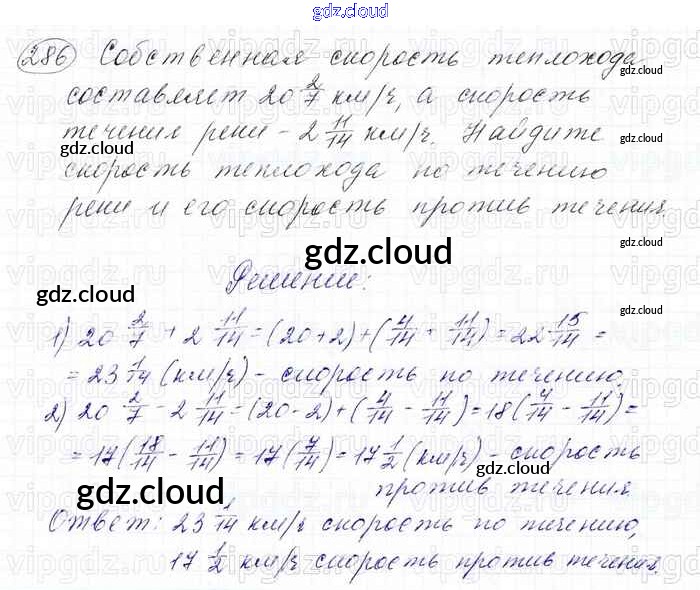 gdz.cloud
286 Собственная скорость теплохода
gdz.cloud
составляет 20 2/7 км/ч, а скорость
течения реки – 2 11/14 км/ч. Найдите
gdz.cloud
gdz.cloud
скорость теплохода по течению
реки и его скорость против течения.
gdz.cloud
gdz.cloud
Решение:
gdz.cloud
gdz.cloud
1) 20 2/7 + 2 11/14 = (20+2)+(4/14 + 11/14) = 22 15/14 =
= 23 1/14 (км/ч) – скорость по течению.
gdz.cloud
2) 20 2/7 - 2 11/14 = (20-2)+(4/14 - 11/14) = 18(4/14 - 11/14) =
= 17(18/14 - 11/14) = 17(7/14) = 17 1/2 (км/ч) – скорость
gdz.cloud
против течения
gdz.cloud
Ответ: 23 1/14 км/ч скорость по течению,
17 1/2 км/ч скорость против течения.
gdz.cloud